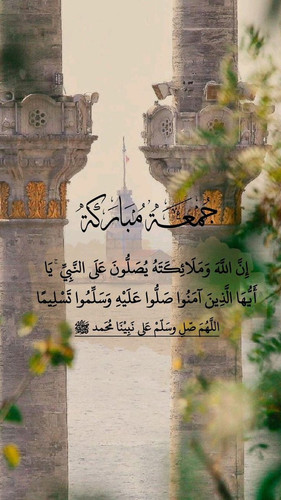 جُمُعَةٌ مُبَارَكَةٌ
إِنَّ اللَّهَ وَمَلَائِكَتَهُ يُصَلُّونَ عَلَى النَّبِيِّ ۚ يَا
أَيُّهَا الَّذِينَ آمَنُوا صَلُّوا عَلَيْهِ وَسَلِّمُوا تَسْلِيمًا
اللَّهُمَ صَلِ وسَلِمْ عَلى نَبِيْنَا مُحَمد ﷺ